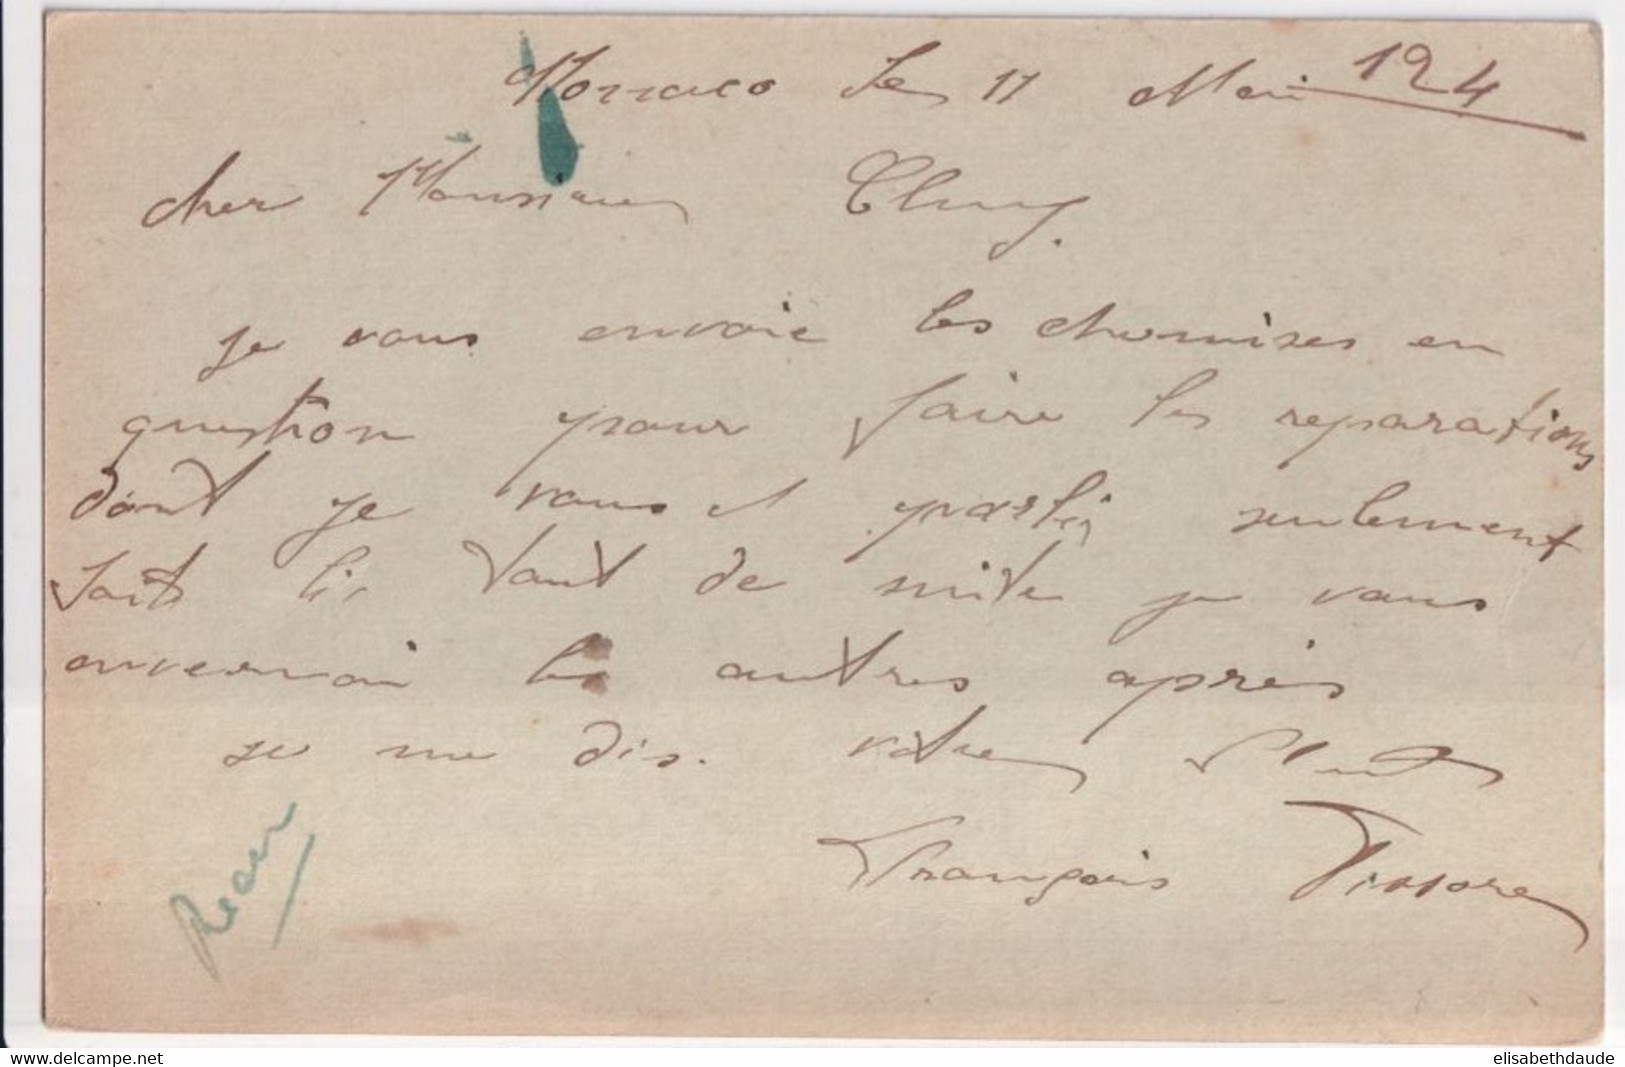 Monaco le 11 Mai 124
cher Monsieur
je vous envoie les chemises en
question pour faire les reparations
dont je vous et parler seulement
faits tout de suite je vous
enverrai les autres après
je me dis. votre
François Tissore
delcampe.net
elisabethdaude